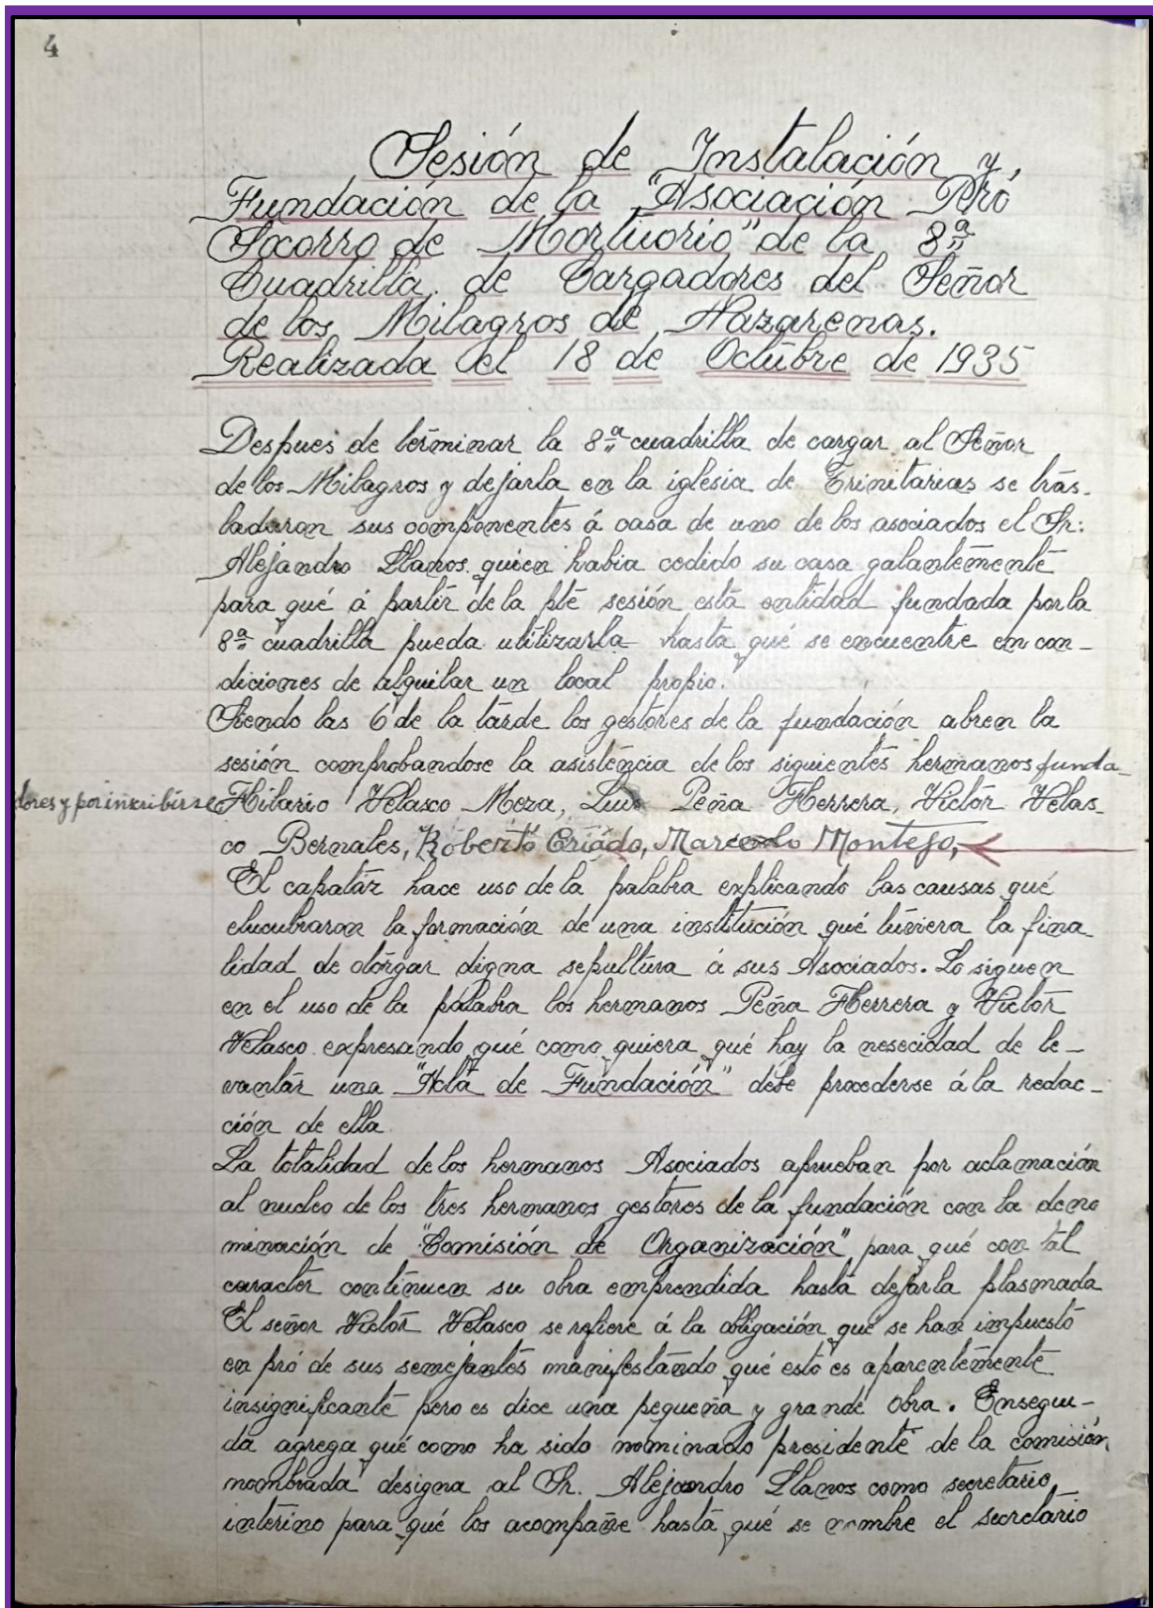 4
Sesión de Instalación y
Fundación de la "Asociación Pró
Socorro de Mortuorio" de la 8ª
Cuadrilla de Cargadores del Señor
de los Milagros de Nazarenas.
Realizada el 18 de Octubre de 1935
Despues de términar la 8ª cuadrilla de cargar al Señor
de los Milagros y dejarla en la iglesia de Trinitarias se tras-
ladaron sus componentes á casa de uno de los asociados el Sr:
Alejandro Llanos quien habia cedido su casa galantemente
para qué á partir de la pte sesión está entidad fundada por la
8ª cuadrilla pueda utilizarla hasta qué se encuentre en con-
diciones de alquilar un local propio.
Siendo las 6 de la tarde los gestores de la fundación abren la
sesión comprobandose la asistencia de los siguientes hermanos funda-
dores y por inscribirse Hilario Velasco Meza, Luis Peña Herrera, Victor Velas-
co Bernales, Roberto Criado, Marcelo Montejo,
El capatáz hace uso de la palabra explicando las causas qué
elucubraron la formación de una institución qué tuviera la fina
lidad de otórgar digna sepultura á sus Asociados. Lo siguen
en el uso de la palabra los hermanos Peña Herrera y Victor
Velasco expresando qué como quiera qué hay la nesecidad de le-
vantar una "Acta de Fundación" debe procederse á la redac-
ción de ella
La totalidad de los hermanos Asociados aprueban por aclamación
al nucleo de los tres hermanos gestores de la fundación con la deno
minación de "Comisión de Organización" para qué con tal
caracter continuen su obra emprendida hasta dejarla plasmada
El señor Victor Velasco se refiere á la obligación qué se han impuesto
en pró de sus semejantes manifestando qué esto es aparentemente
insignificante pero es dice una pequeña y grande obra. Ensegui-
da agrega qué como ha sido nominado presidente de la comisión
nombrada designa al Sr. Alejandro Llanos como secretario
interino para qué los acompañe hasta qué se nombre el secretario